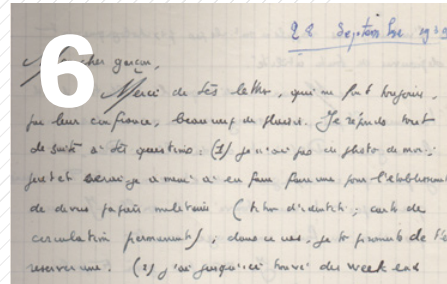 6
28 Septembre 1939
Mon cher garçon,
Merci de tes lettres, qui me font toujours,
par leur confiance, beaucoup de plaisir. Je réponds tout
de suite à tes questions : (1) je n'ai pas de photo de moi ;
peut-être serai-je amené à en faire faire une pour l'établissement
de divers papiers militaires ( d'identité ; carte de
circulation permanente) ; dans ce cas, je te promets de t'en
réserver une. (2) j'ai jusqu'ici trouvé des week end